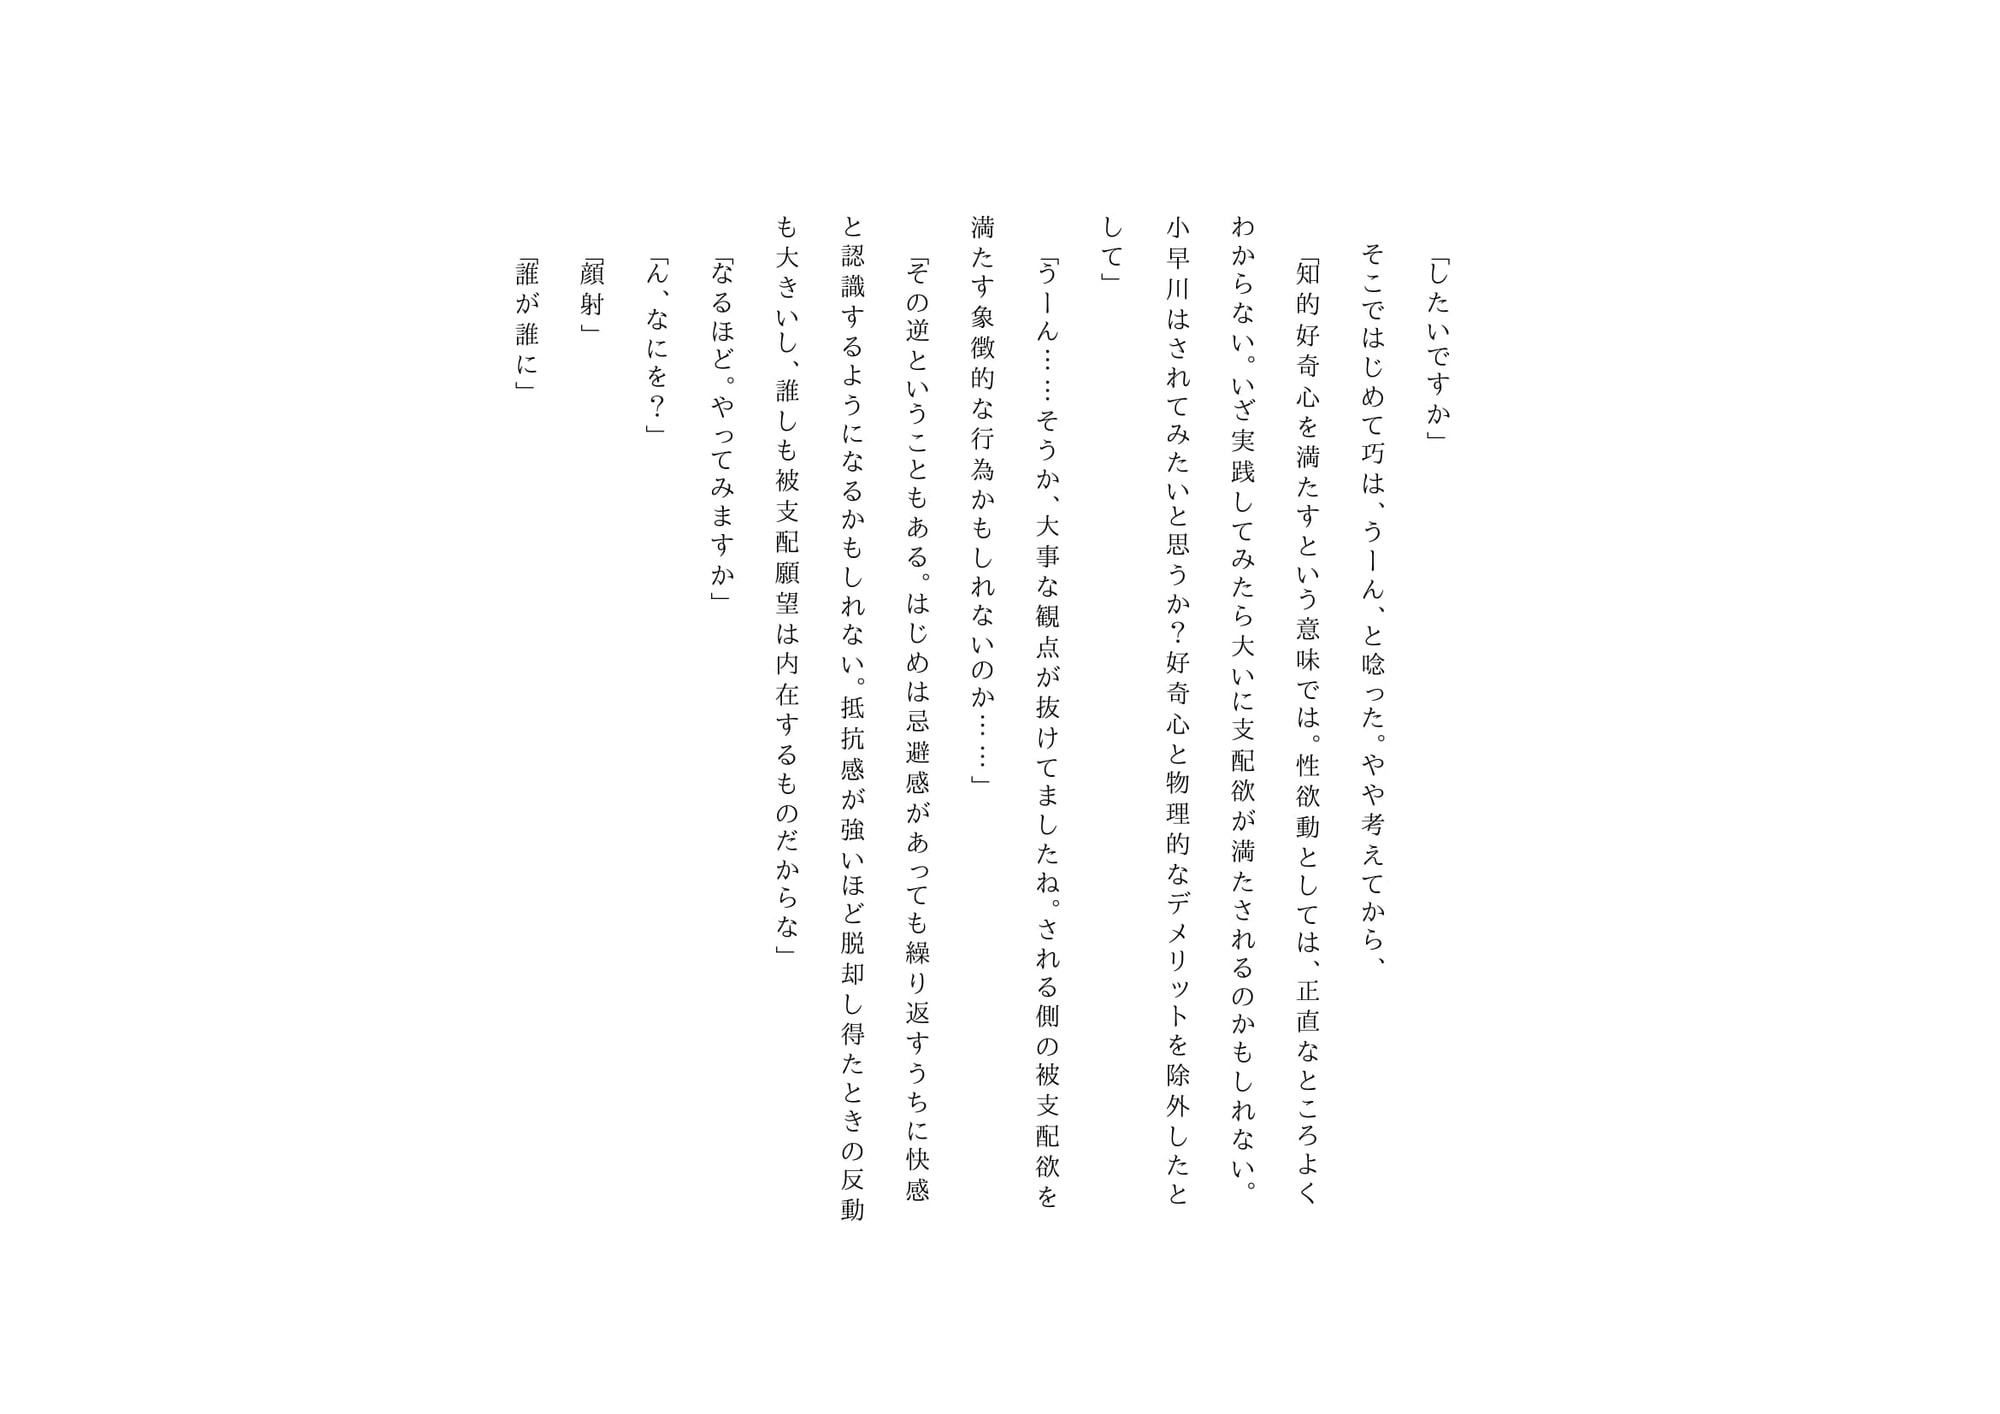 「したいですか」
そこではじめて巧は、うーん、と唸った。やや考えてから、
「知的好奇心を満たすという意味では。性欲動としては、正直なところよく
わからない。いざ実践してみたら大いに支配欲が満たされるのかもしれない。
小早川はされてみたいと思うか？好奇心と物理的なデメリットを除外したと
して」
「うーん……そうか、大事な観点が抜けてましたね。される側の被支配欲を
満たす象徴的な行為かもしれないのか……」
「その逆ということもある。はじめは忌避感があっても繰り返すうちに快感
と認識するようになるかもしれない。抵抗感が強いほど脱却し得たときの反動
も大きいし、誰しも被支配願望は内在するものだからな」
「なるほど。やってみますか」
「ん、なにを？」
「顔射」
「誰が誰に」